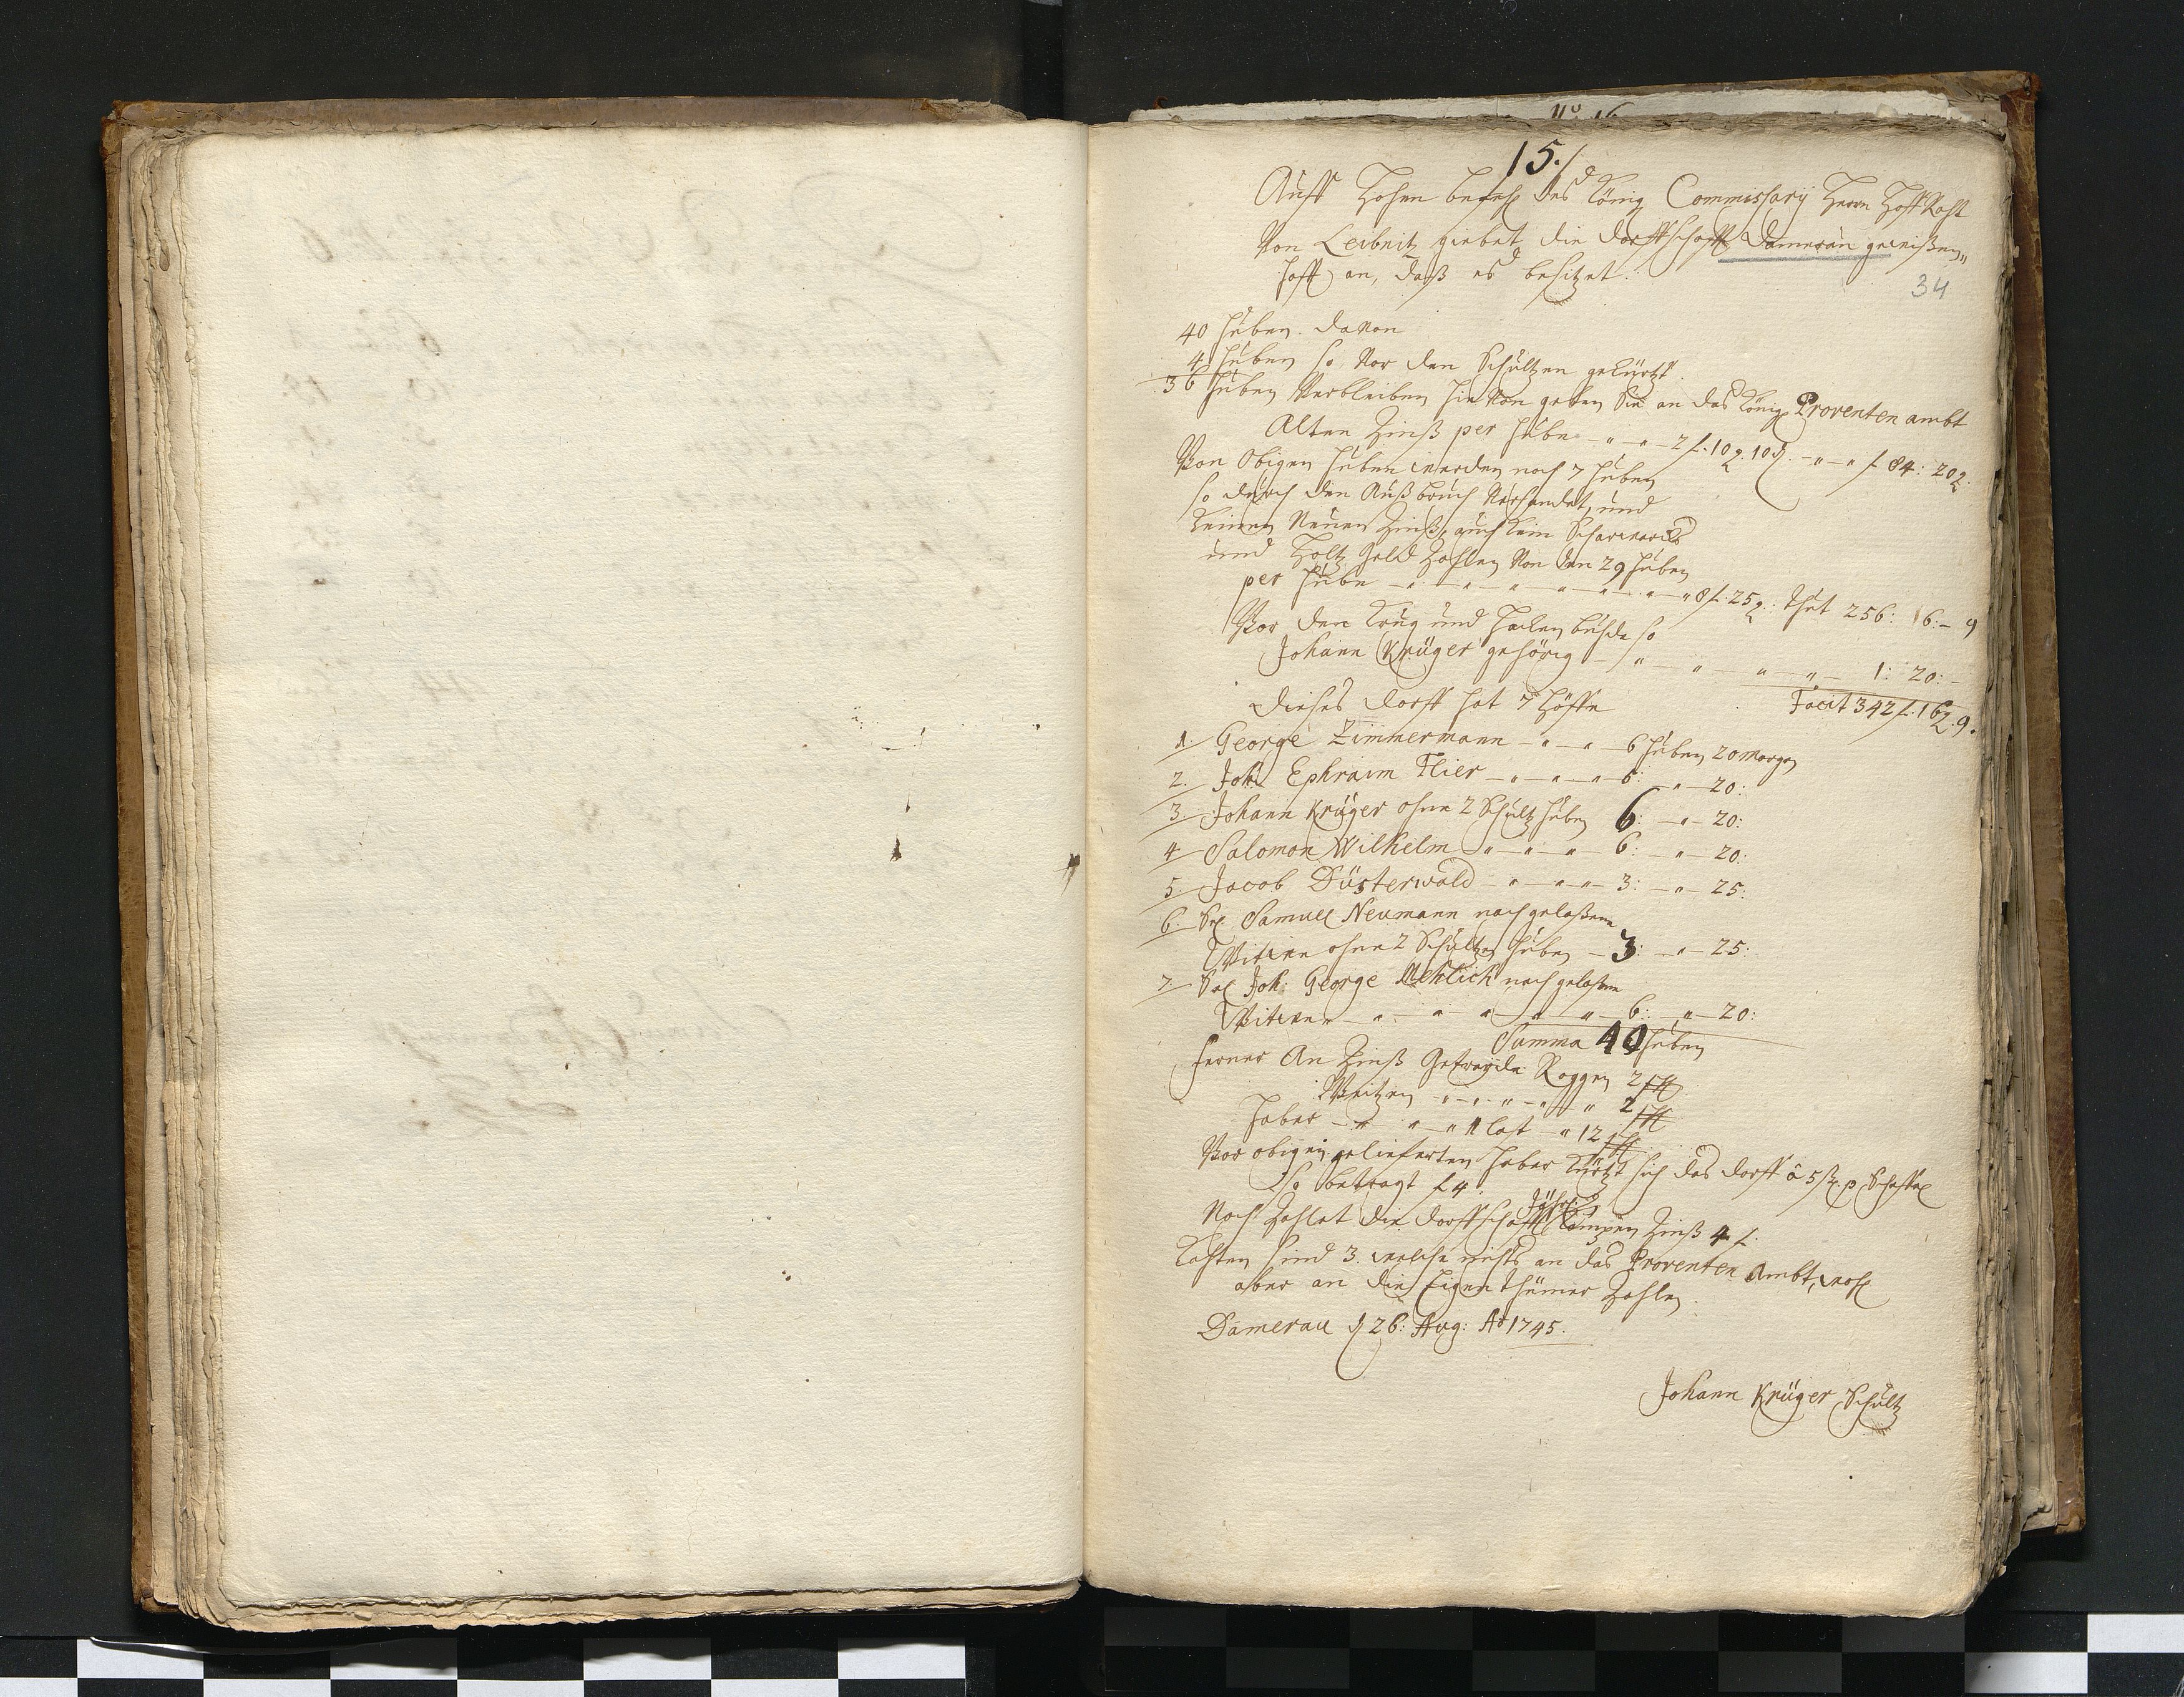 No 16
15./
Auff Hohen befehl des König Commissarij Herrn HoffRaht
Von Leibnitz giebet die Dorffschafft Damerau gewißen„
hafft an, daß es besitzet.
34
40 Huben davon
4 Huben so vor den Schultzen gekürtzt.
36 Huben Verbleiben hievon geben Sie an das Königl Proventen ambt
Alten Zinß per Hube - „ - „ - 2 f. 10 g. 10 d. - „ - „ f 84: 20 g.
Von Obigen Huben werden noch 7 Huben
so durch den Außbruch Versandet, und
keinen Neuen Zinß, auch kein Scharwercks
und Holtz Geld Zahlen Von den 29 Huben
per Hube - „ - „ - „ - „ - „ - „ 8 f. 25 g.: thut 256: 16:- 9
Vor den Krug und Haken bude so
Johann Krüger gehörig - „ - „ - „ - „ - 1: 20:-
Dieses Dorff hat 7 Höffe
Facit 342 f. 16 g. 9.
1. George Zimmermann - „ - „ - 6 Huben 20 Morgen
2. Joh: Ephraim Flier - „ - „ - „ - 6: - „ - 20:
3. Johann Krüger ohne 2 Schultz Huben 6: - „ - 20:
4 Salomon Wilhelm „ - „ - „ - 6: - „ - 20:
5. Jacob Düsterwald - „ - „ - „ - 3: - „ - 25:
6. Sel Samuel Neumann nachgelaßene
Wittwe ohne 2 Schultzen Huben - 3: - „ - 25:
7. Sel Joh: George Mehlich nachgelaßene
Wittwe „ - „ - „ - „ - „ - 6: - „ - 20:
Summa 40 Huben
Ferner An Zinß Getreyde Roggen 2 schff
Weitzen „ - „ - „ - „ - „ 2 schff
Haber - „ - „ - „ 1 last - „ 12 schff
Vor obigen geliefferten Haber kürtzt sich das Dorff â 5 p Scheffel
So betragt f 4.
Noch Zahlet die Dorffschafft Jährl: Kämpen Zinß 4 f.
Kahten sind 3. welche nichts an das Proventen Ambt, wohl
aber an die Eigenthümer Zahlen.
Damerau d 26: Aug: Ao 1745.
Johann Krüger Schultz